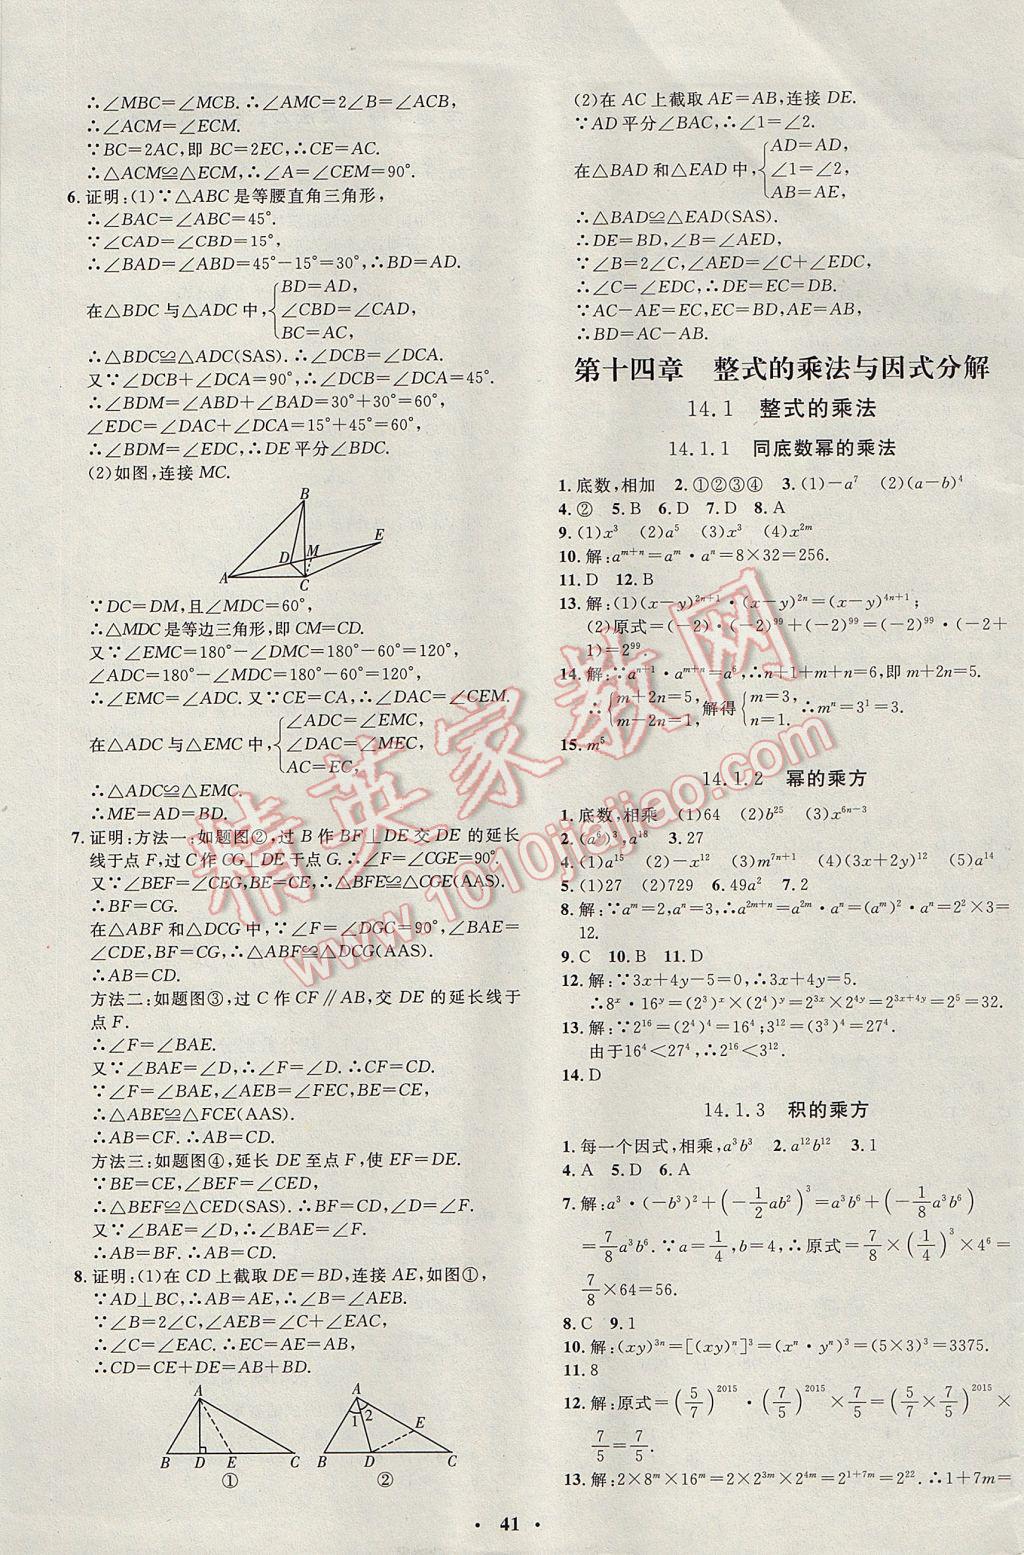 ∴∠MBC=∠MCB.∴∠AMC=2∠B=∠ACB,
∴∠ACM=∠ECM.
∵BC=2AC,即BC=2EC,∴CE=AC.
∴△ACM≌△ECM,∴∠A=∠CEM=90°.
6.证明:(1)∵△ABC是等腰直角三角形,
∴∠BAC=∠ABC=45°.
∵∠CAD=∠CBD=15°,
∴∠BAD=∠ABD=45°-15°=30°,∴BD=AD.
在△BDC与△ADC中,{BD=AD,
∠CBD=∠CAD,
BC=AC,
∴△BDC≌△ADC(SAS).∴∠DCB=∠DCA.
又∵∠DCB+∠DCA=90°,∴∠DCB=∠DCA=45°.
∴∠BDM=∠ABD+∠BAD=30°+30°=60°,
∠EDC=∠DAC+∠DCA=15°+45°=60°.
∴∠BDM=∠EDC,∴DE平分∠BDC.
(2)如图,连接MC.
B
E
D
M
A
C
∵DC=DM,且∠MDC=60°,
∴△MDC是等边三角形,即CM=CD.
又∵∠EMC=180°-∠DMC=180°-60°=120°,
∠ADC=180°-∠MDC=180°-60°=120°,
∴∠EMC=∠ADC.又∵CE=CA,∴∠DAC=∠CEM.
在△ADC与△EMC中,{∠ADC=∠EMC,
∠DAC=∠MEC,
AC=EC,
∴△ADC≌△EMC.
∴ME=AD=BD.
7.证明:方法一:如题图②,过B作BF⊥DE交DE的延长
线于点F,过C作CG⊥DE于点G.∴∠F=∠CGE=90°.
又∵∠BEF=∠CEG,BE=CE,∴△BFE≌△CGE(AAS).
∴BF=CG.
在△ABF和△DCG中,∵∠F=∠DGC=90°,∠BAE=
∠CDE,BF=CG,∴△ABF≌△DCG(AAS).
∴AB=CD.
方法二:如题图③,过C作CF∥AB,交DE的延长线于
点F.
∴∠F=∠BAE.
又∵∠BAE=∠D,∴∠F=∠D.∴CF=CD.
∵∠F=∠BAE,∠AEB=∠FEC,BE=CE,
∴△ABE≌△FCE(AAS).
∴AB=CF.∴AB=CD.
方法三:如题图④,延长DE至点F,使EF=DE.
∵BE=CE,∠BEF=∠CED,
∴△BEF≌△CED(SAS).∴BF=CD,∠D=∠F.
又∵∠BAE=∠D,∴∠BAE=∠F.
∴AB=BF.∴AB=CD.
8.证明:(1)在CD上截取DE=BD,连接AE,如图①,
∵AD⊥BC,∴AB=AE,∴∠B=∠AEB.
∵∠B=2∠C,∠AEB=∠C+∠EAC,
∴∠C=∠EAC.∴EC=AE=AB.
∴CD=CE+DE=AB+BD.
A
B D E C
①
A
1 2
E
B D C
②
(2)在AC上截取AE=AB,连接DE.
∵AD平分∠BAC,∴∠1=∠2.
在△BAD和△EAD中,{AD=AD,
∠1=∠2,
AB=AE,
∴△BAD≌△EAD(SAS).
∴DE=BD,∠B=∠AED,
∵∠B=2∠C,∠AED=∠C+∠EDC,
∴∠C=∠EDC,∴DE=EC=DB.
∵AC-AE=EC,EC=BD,AE=AB,
∴BD=AC-AB.
第十四章 整式的乘法与因式分解
14.1 整式的乘法
14.1.1 同底数幂的乘法
1.底数,相加 2.①②③④ 3.(1)-a⁷ (2)(a-b)⁴
4.② 5.B 6.D 7.D 8.A
9.(1)x³ (2)a⁵ (3)x³ (4)x^{2m}
10.解:a^{m+n}=a^m·a^n=8×32=256.
11.D 12.B
13.解:(1)(x-y)^{2n+1}·(x-y)^{2n}=(x-y)^{4n+1};
(2)原式=(-2)·(-2)^{99}+(-2)^{99}=(-2)^{99}·(-2+
1)=2^{99}.
14.解:∵a^{n+1}·a^{m+n}=a⁶,∴n+1+m+n=6,即m+2n=5.
∵{m+2n=5, m-2n=1, 解得{m=3, n=1. ∴m^n=3¹=3.
15.m⁵
14.1.2 幂的乘方
1.底数,相乘 (1)64 (2)b^{25} (3)x^{6n-3}
2.(a⁶)³,a^{18} 3.27
4.(1)a^{15} (2)-x^{12} (3)m^{7n+1} (4)(3x+2y)⁸ (5)a^{14}
5.(1)27 (2)729 6.49a² 7.2
8.解:∵a^m=2,a^n=3,∴a^{2m+n}=a^{2m}·a^n=(a^m)²·a^n=2²×3=
12.
9.C 10.B 11.D
12.解:∵3x+4y-5=0,∴3x+4y=5.
∴8^x·16^y=(2³)^x×(2⁴)^y=2^{3x}×2^{4y}=2^{3x+4y}=2⁵=32.
13.解:∵2^{16}=(2⁴)⁴=16⁴;3^{12}=(3³)⁴=27⁴.
由于16⁴<27⁴,∴2^{16}<3^{12}.
14.D
14.1.3 积的乘方
1.每一个因式,相乘,a³b³ 2.a^{12}b^{12} 3.1
4.A 5.D 6.A
7.解:a³·(-b³)²+(-1/2 ab²)³=a³b⁶+(-1/8 a³b⁶)
=7/8 a³b⁶.∵a=1/4,b=4,∴原式=7/8×(1/4)³×4⁶=
7/8×64=56.
8.C 9.1
10.解:(xy)^{3n}=[(xy)^n]³=(x^n·y^n)³=(5×3)³=3375.
11.8
12.解:原式=(5/7)^{2015}·(7/5)^{2015}×7/5=(5/7×7/5)^{2015}×
7/5=7/5.
13.解:2×8^m×16^m=2×2^{3m}×2^{4m}=2^{1+7m}=2^{22}.∴1+7m=
·41·
精英家教网
www.1010jiajiao.com